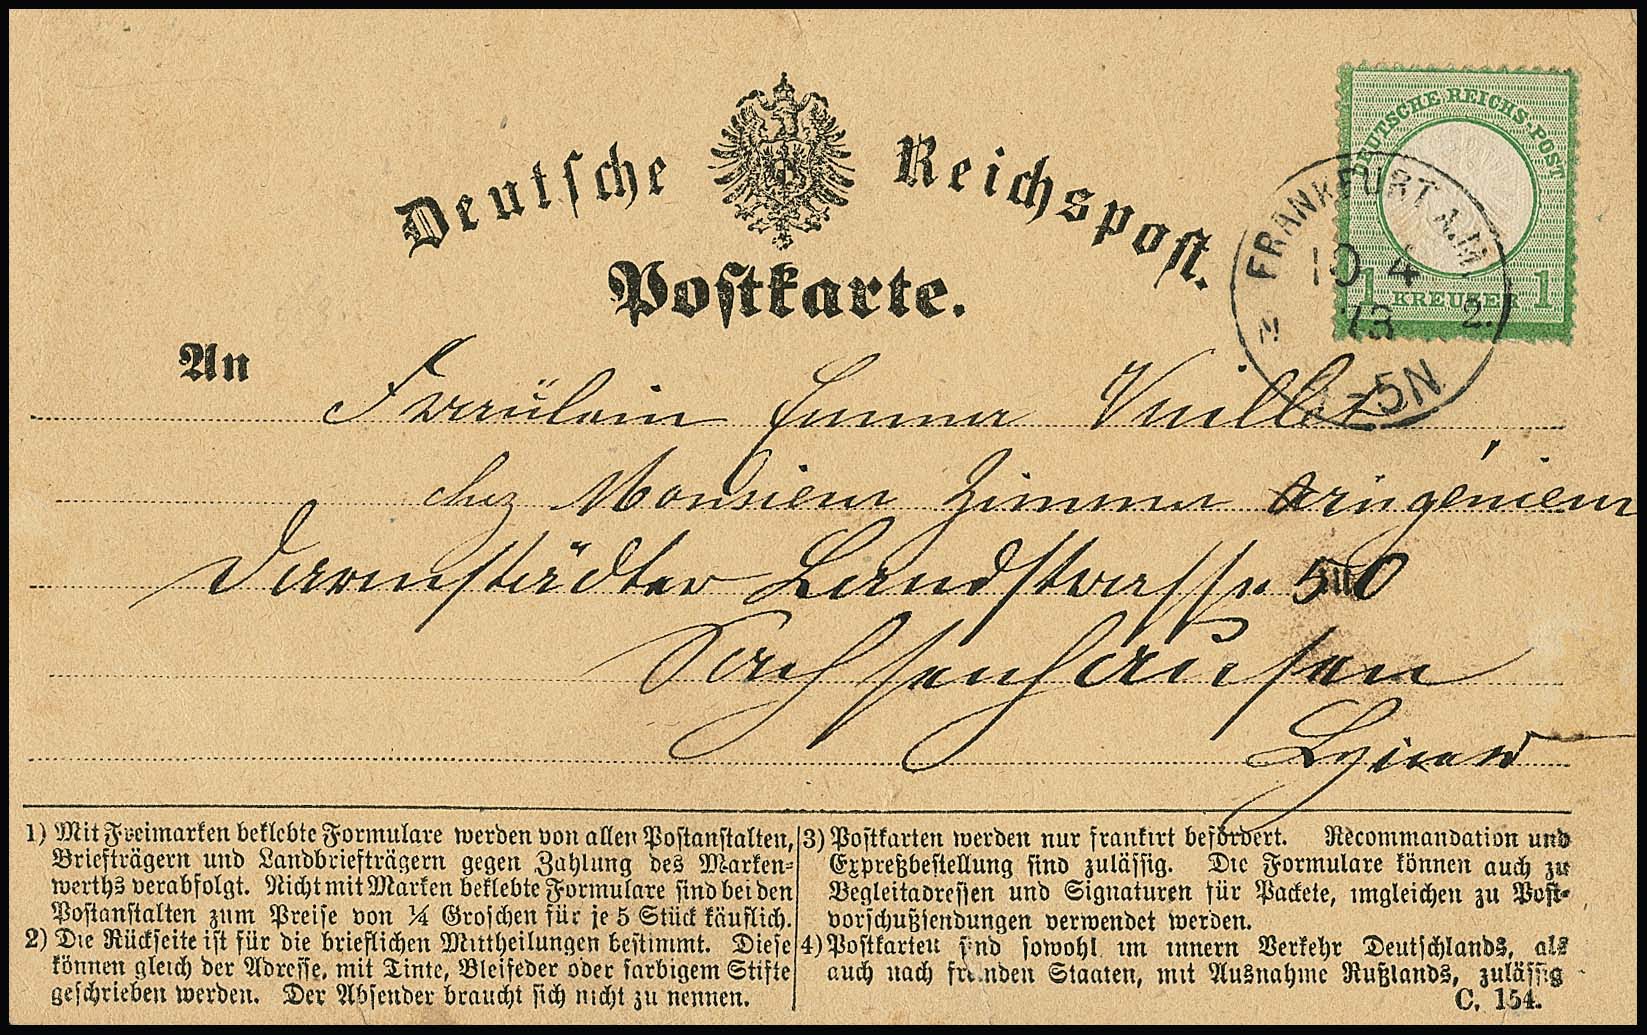 Deutsche Reichspost.
Postkarte.
DEUTSCHE REICHS-POST
1 KREUZER 1
FRANKFURT A.M.
10 4
73
2.
-5N
An
Fräulein Emma Vuillet
chez Monsieur Zimmer ingénieur
Darmstädter Landstrasse 50
Sachsenhausen
1) Mit Freimarken beklebte Formulare werden von allen Postanstalten,
Briefträgern und Landbriefträgern gegen Zahlung des Marken=
werths verabfolgt. Nicht mit Marken beklebte Formulare sind bei den
Postanstalten zum Preise von ¼ Groschen für je 5 Stück käuflich.
2) Die Rückseite ist für die brieflichen Mittheilungen bestimmt. Diese
können gleich der Adresse, mit Tinte, Bleifeder oder farbigem Stifte
geschrieben werden. Der Absender braucht sich nicht zu nennen.
3) Postkarten werden nur frankirt befördert. Recommandation und
Expreßbestellung sind zulässig. Die Formulare können auch zu
Begleitadressen und Signaturen für Packete, imgleichen zu Post-
vorschußsendungen verwendet werden.
4) Postkarten sind sowohl im innern Verkehr Deutschlands, als
auch nach fremden Staaten, mit Ausnahme Rußlands, zulässig
C. 154.